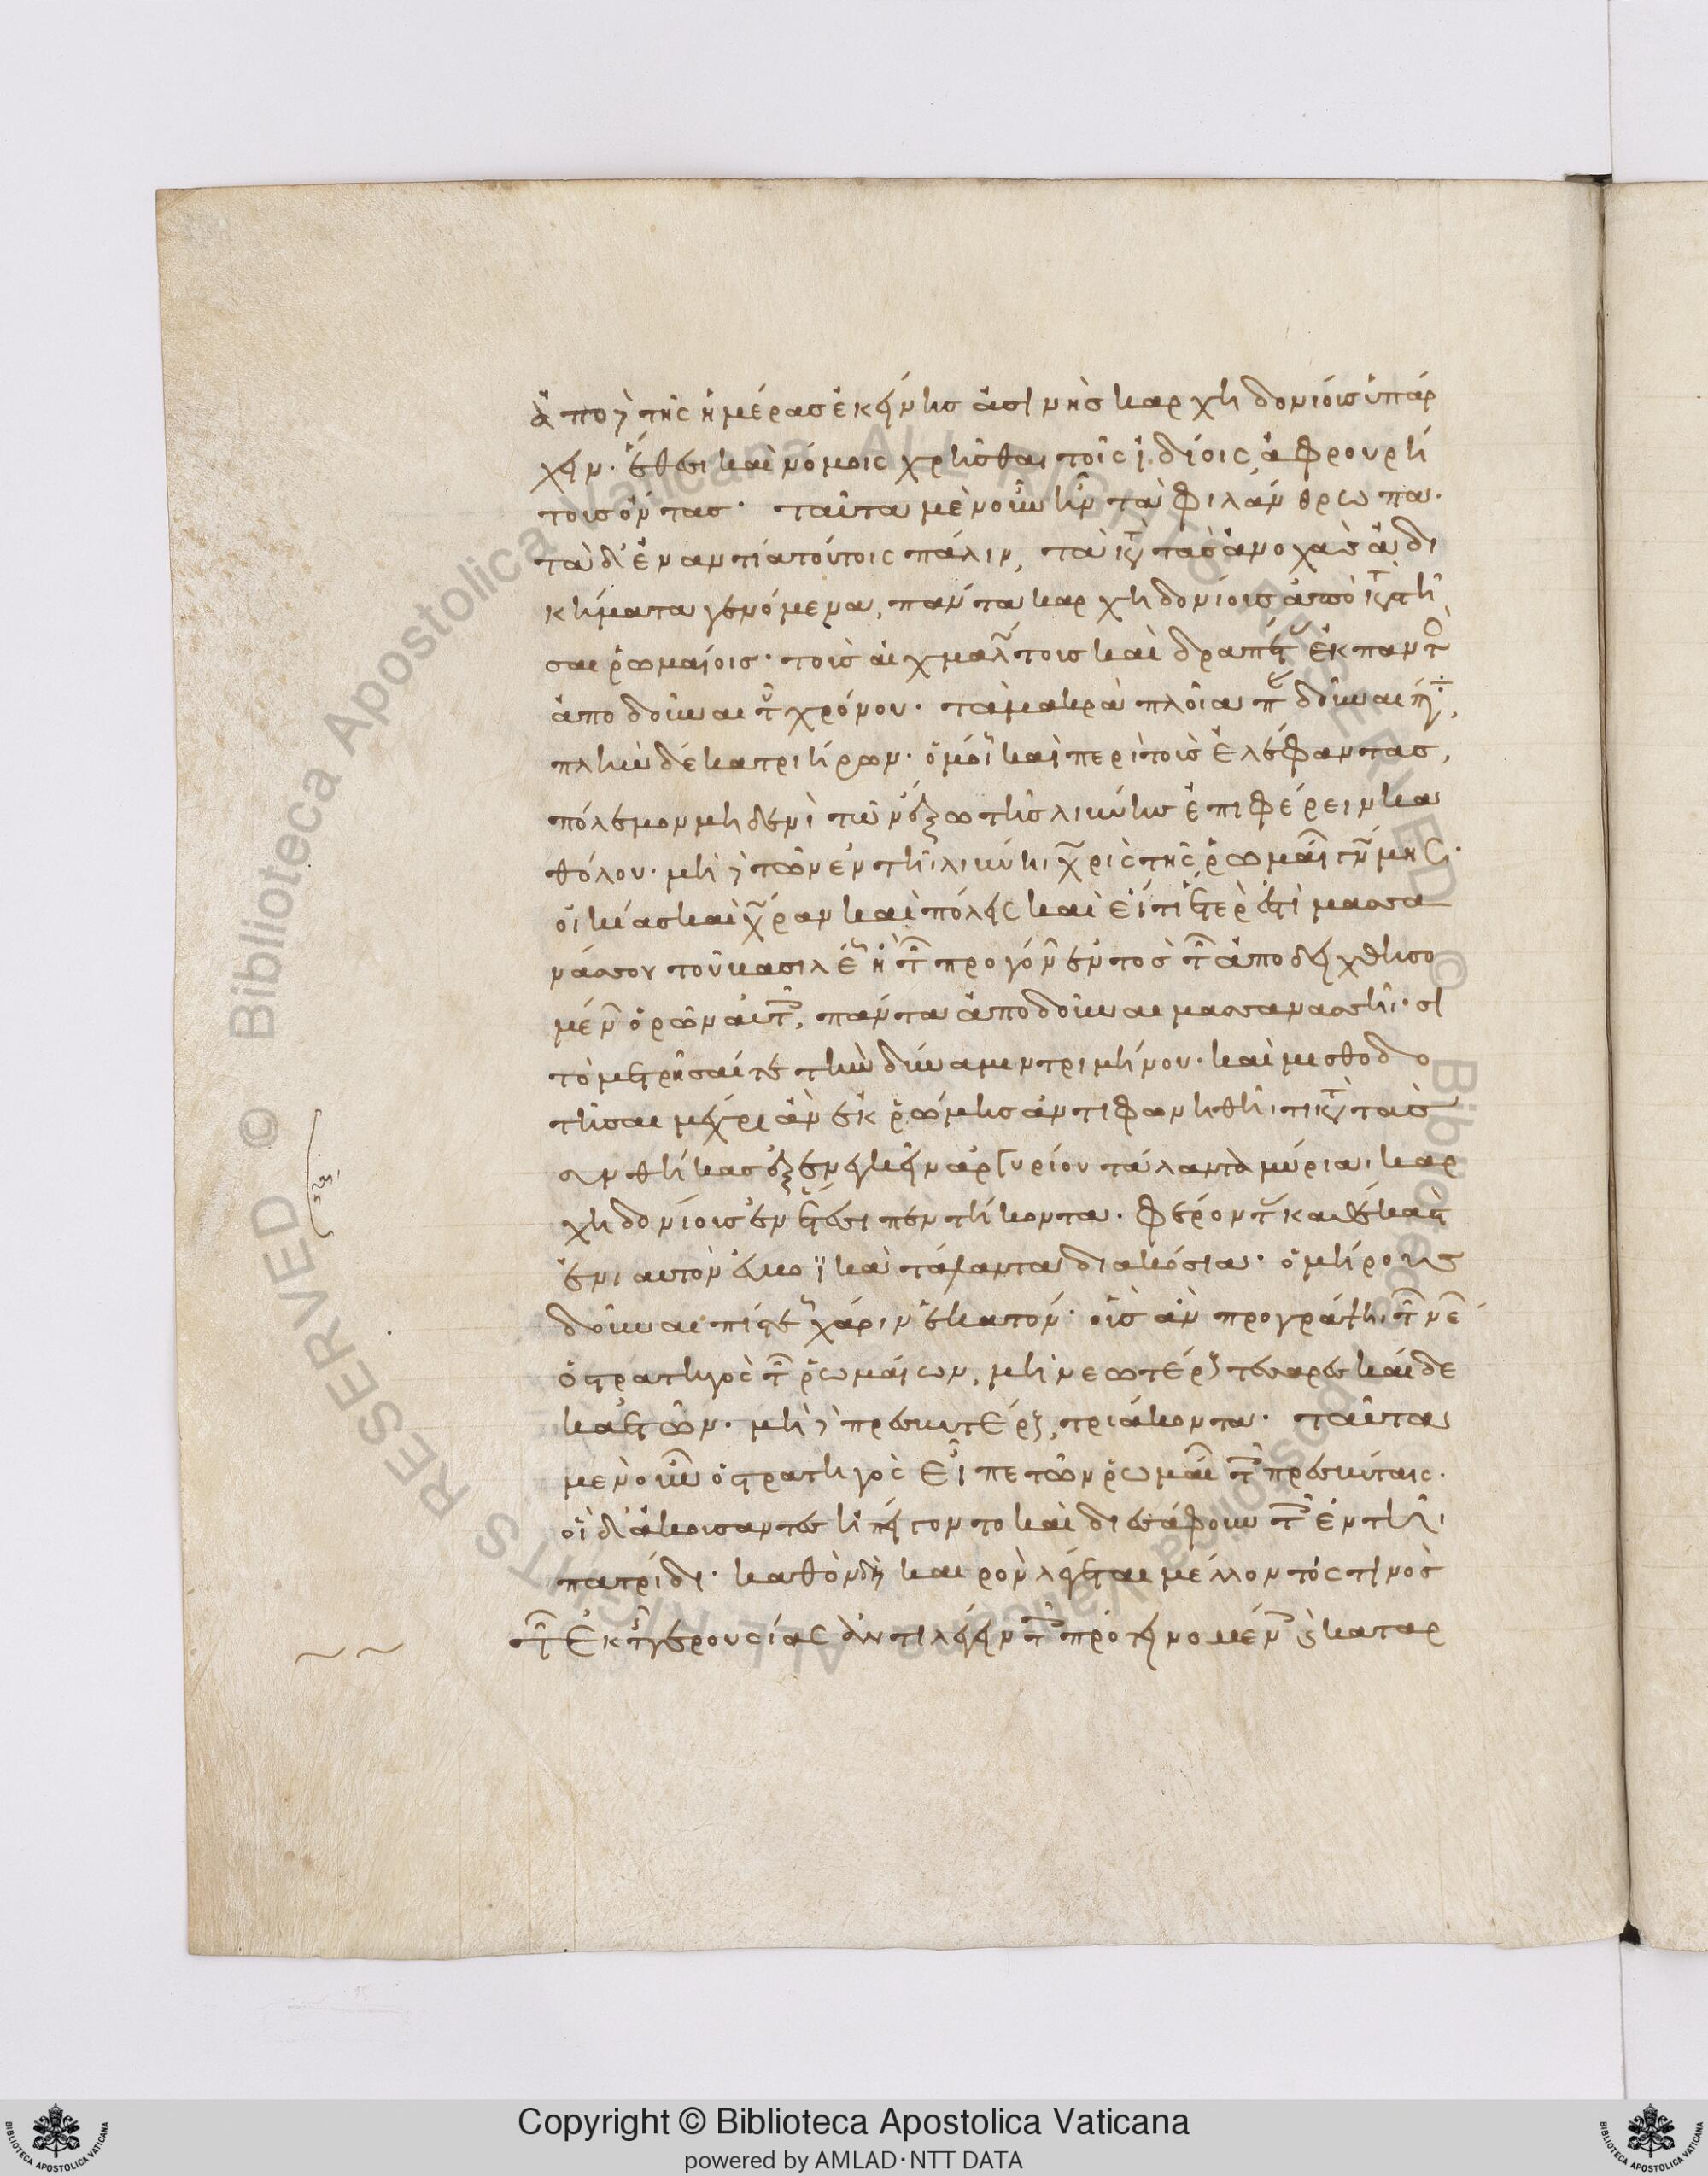 ἀπὸ δὲ τῆς ἡμέρας ἐκείνης ἀσινῆς καρχηδονίοις ὑπάρ
χειν· ἔθεσι καὶ νόμοις χρῆσθαι τοῖς ἰδίοις ἀφρουρή
τοις ὄντας· ταῦτα μὲν οὖν ἦν τὰ φιλάνθρωπα·
τὰ δ' ἐναντία τούτοις πάλιν, τὰ κατὰ τὰς ἀνοχὰς ἀδι
κήματα γενόμενα, πάντα καρχηδονίοις ἀποκατῆ
σαι ῥωμαίοις· τοὺς αἰχμαλώτους καὶ δραπέτας ἐκ παντὸς
ἀποδοῦναι τοῦ χρόνου· τὰ μακρὰ πλοῖα παραδοῦναι πάντα,
πλὴν δέκα τριήρων· ὁμοίως καὶ περὶ τοὺς ἐλέφαντας,
πόλεμον μηδενὶ τῶν ἔξω τῆς λιβύης ἐπιφέρειν κα
θόλου· μηδὲ τῶν ἐν τῆι λιβύηι χωρὶς τῆς ῥωμαίων γνώμης·
οἰκίας καὶ χώραν καὶ πόλεις καὶ εἴ τι ἕτερόν ἐστι μασσα
νάσσου τοῦ βασιλέως ἢ τῶν προγόνων ἐντὸς τῶν ἀποδειχθησο
μένων ὅρων αὐτοῖς, πάντα ἀποδοῦναι μασσανάσσηι· σι
τομετρῆσαί τε τὴν δύναμιν τριμήνου· καὶ μισθοδο
τῆσαι μέχρι ἂν ἐκ ῥώμης ἀντιφωνηθῆι τι κατὰ τὰς
συνθήκας ἐξενεγκεῖν ἀργυρίου τάλαντα μύρια, καρ
χηδονίοις ἐν ἔτεσι πεντήκοντα· φέροντας καθ' ἕκαστον
ἐνιαυτὸν εὐβοϊκὰ τάλαντα διακόσια· ὁμήρους
δοῦναι πίστεως χάριν ἑκατόν· οὓς ἂν προγράψηι τῶν νέων
ὁ στρατηγὸς τῶν ῥωμαίων, μὴ νεωτέρους τεσσαρεσκαίδε
κα ἐτῶν· μηδὲ πρεσβυτέρους τριάκοντα· ταῦτα
μὲν οὖν ὁ στρατηγὸς εἶπε τῶν ῥωμαίων τοῖς πρεσβύταις·
οἱ δ' ἀκούσαντες ἠπείγοντο καὶ διεσάφουν τοῖς ἐν τῆι
πατρίδι· καθ' ὃν δὴ καιρὸν λέγεται μέλλοντός τινος
τῶν ἐκ τῆς γερουσίας ἀντιλέγειν τοῖς προτεινομένοις καὶ καταρ